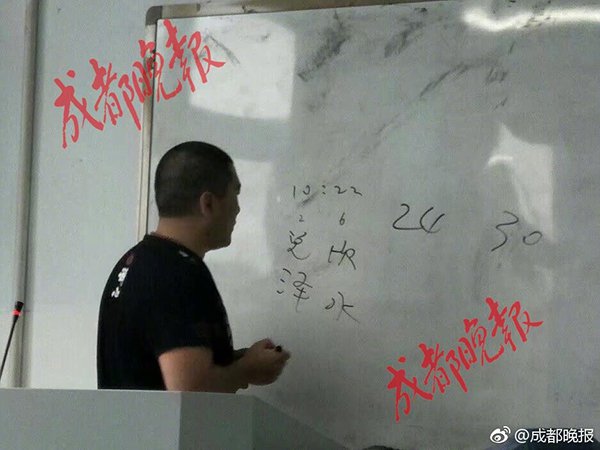 成都晚報
10:22
2 6
24 30
兑
泽 水
成都晚報
@成都晚报